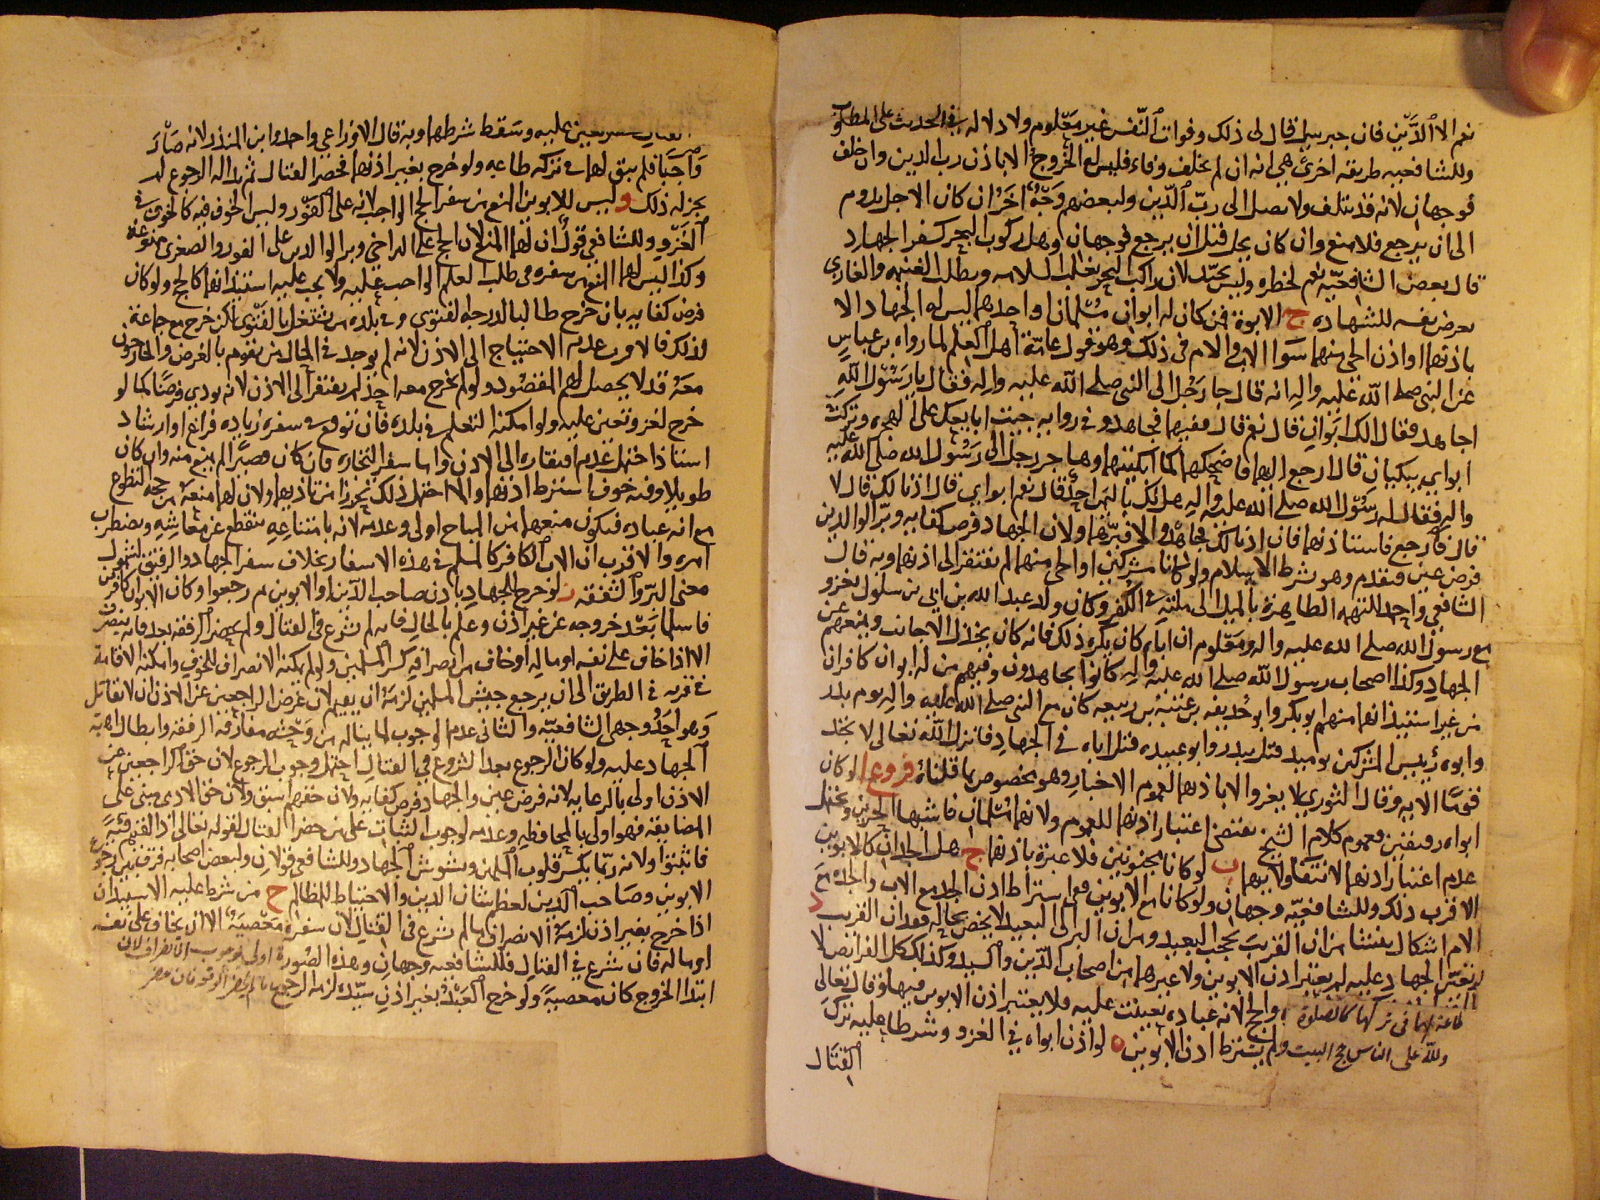 نعم الا الدَّين فان جبرئيل قال لى ذلك وفوات النّفس غير معلوم ولا دلالة فى الحديث على المطلوب
وللشافعيه طريقه اخرى هى انه ان لم يخلف وفاء فليس له الخروج الا باذن رب الدين وان خلف
فوجهان لانه قد يتلف ولا يصل الى ربّ الدّين ولبعضهم وجه اخر ان كان الاجل يدوم
الى ان يرجع فلا منع وان كان يحل قبل ان يرجع فوجهان وهل ركوب البحر كسفر الجهاد
قال بعض الشافعيّة نعم لخطره وليس بجيّد لان راكب البحر يغلب السلامه ويطلب الغنيمه والغازى
يعرض نفسه للشهاده ج الابوة فمن كان له ابوان مسلمان او احدهما ليس له الجهاد الا
باذنهما او اذن الحى منهما سوا الاب والام فى ذلك وهو قول عامّة اهل العلم لما رواه بن عباس
عن النبى صلى الله عليه واله انه قال جا رجل الى النبى صلى الله عليه واله فقال يا رسول الله
اجاهد فقال الك ابوان قال نعم قال ففيهما فجاهد وفى روايه جيت ابايعك على الهجره وتركت
ابواى يبكيان قال ارجع اليهما فاضحكهما كما ابكيتهما وهاجر رجل الى رسول الله صلى الله عليه
واله فقال له رسول الله صلى الله عليه واله هل لك باليمن احد قال نعم ابواى قال اذنا لك قال لا
قال فارجع فاستاذنهما فان اذنا لك فجاهد والا فبرّهما ولان الجهاد فرض كفايه وبرّ الوالدين
فرض عين فيقدم وهو بشرط الاسلام ولو كانا مشركين او الحى منهما لم يفتقر الى اذنهما وبه قال
الشافعى واحمد للتهمه الظاهرة بالميل الى ملّته فى الكفر وكان ولد عبد الله بن ابى بن سلول يغزو
مع رسول الله صلى الله عليه واله ومعلوم ان اباه كان يكره ذلك فانه كان يخذل الاجانب ويمنعهم عن
الجهاد وكذا اصحاب رسول الله صلى الله عليه واله كانوا يجاهدون وفيهم من له ابوان كافران
من غير استيذانهما منهم ابو بكر وابو حذيفه بن عتبة بن ربيعه كان مع النبى صلى الله عليه واله يوم بدر
وابوه رئيس المشركين يوميذ قتل ببدر وابو عبيده قتل اباه فى الجهاد فانزل الله تعالى لا تجد
قومًا الايه وقال الثورى لا يغزوا الا باذنهما لعموم الاخبار وهو مخصوص بما قلناه فروع ا لو كان
ابواه رقيقين فعموم كلام الشيخ يقتضى اعتبار اذنهما للعموم ولانهما مسلمان فاشبها الحرين ويحتمل
عدم اعتبار اذنهما لانتفاء ولايتهما ب لو كانا مجنونين فلا عبرة باذنهما ج هل الجدان كالابوين
الاقرب ذلك وللشافعيّه وجهان ولو كانا مع الابوين ففى اشتراط اذن الجد مع الاب والجده مع
الام اشكال ينشا من ان القريب يحجب البعيد ومن ان البر الى البعيد لا يختص بحالة فقدان القريب د
لو تعيّن الجهاد عليه لم يعتبر اذن الابوين ولا غيرهما من اصحاب الدّين والسيد وكذلك كل الفرائض لا
طاعة لهما فى تركها كالصلوة والحج لانه عباده تعينت عليه فلا يعتبر اذن الابوين فيها وقال تعالى
ولله على الناس حج البيت ولم يشترط اذن الابوين ه لو اذن ابواه فى الغزو وشرطا عليه ترك
القتال
القتال تعين عليه وسقط شرطهما وبه قال الاوزاعى واحمد وابن المنذر لانه صار
واجبًا فلم يبق لهما فى تركه طاعه ولو خرج بغير اذنهما فحضر القتال ثم بدا له الرجوع لم
يجز له ذلك و ليس للابوين المنع من سفر الحج الواجب لانه على الفور وليس الخوف فيه كالخوف فى
الغزو وللشافعى قول ان لهما المنع لان الحج على التراخى وبر الوالدين على الفور والصغرى ممنوعة
وكذا ليس لهما المنع من سفره فى طلب العلم الواجب عليه ولا يجب عليه استيذانهما كالحج ولو كان
فرض كفايه بان خرج طالبا لدرجه الفتوى وفى بلده من يشتغل بالفتوى لكن خرج مع جماعة
لذلك فالاقرب عدم الاحتياج الى الاذن لانه لم يوجد فى الحال من يقوم بالغرض والخارجون
معه قد لا يحصل لهم المقصود ولو لم يخرج معه احد لم يفتقر الى الاذن لانه يودى فرضًا كما لو
خرج لغزو تعين عليه ولو امكنه التعلم فى بلده فان توقع فى سفره زياده فراغ او ارشاد
استاذ احتمل عدم افتقاره الى الاذن واما سفر التجاره فان كان قصيرًا لم يمنع منه وان كان
طويلا وفيه خوف اشترط اذنهما والا احتمل ذلك تحرزا من تاذيهما ولان لهما منعه من حجه التطوع
مع انه عباده فيكون منعهما من المباح اولى وعدمه لانه بامتناعه ينقطع عن معايشه ويضطرب
امره والاقرب ان الاب الكافر كالمسلم فى هذه الاسفار بخلاف سفر الجهاد والرقيق لشمول
معنى البرّ والشفقه ز لو خرج للجهاد باذن صاحب الدّين او الابوين ثم رجعوا او كان الابوان كافرين
فاسلما بعد خروجه عن غير اذن وعلم بالحال فان لم يشرع فى القتال ولم يحضر الوقعه بعد فانه ينصرف
الا اذا خاف على نفسه او ماله او خاف من انصرافه كسر المسلمين ولو لم يمكنه الانصراف للخوف وامكنه الاقامة
فى قريه فى الطريق الى ان يرجع جيش المسلمين لزمه ان يقيم لان غرض الراجعين عن الاذن ان لا يقاتل
وهو احد وجهى الشافعيّه والثانى عدم الوجوب لما يناله من وحشه مفارقه الرفقه وابطال اهبة
الجهاد عليه ولو كان الرجوع بعد الشروع فى القتال احتمل وجوب الرجوع لان حق الراجعين عن
الاذن اولى بالرعايه لانه فرض عين والجهاد فرض كفايه ولان حقهم اسبق ولان حق الادمى مبنى على
المضايقه فهو اولى بالمحافظه وعدمه لوجوب الثبات على من حضر القتال لقوله تعالى اذا لقيتم فئة
فاثبتوا ولانه ربّما يكسر قلوب المسلمين ويشوش الجهاد وللشافعى قولان ولبعض اصحابه فرق بين رجوع
الابوين وصاحب الدّين لعظم شان الدين والاحتياط للمظالم ح من شرط عليه الاستيذان
اذا خرج بغير اذن لزمه الانصراف ما لم يشرع فى القتال لان سفره معصية الا ان يخاف على نفسه
او ماله فان شرع فى القتال فللشافعيه وجهان وهذه الصوره اولى بوجوب الانصراف لان
ابتدا الخروج كان معصيةً ولو خرج العبد بغير اذن سيّده لزمه الرجوع ما لم يحضر الوقعه فان حضر